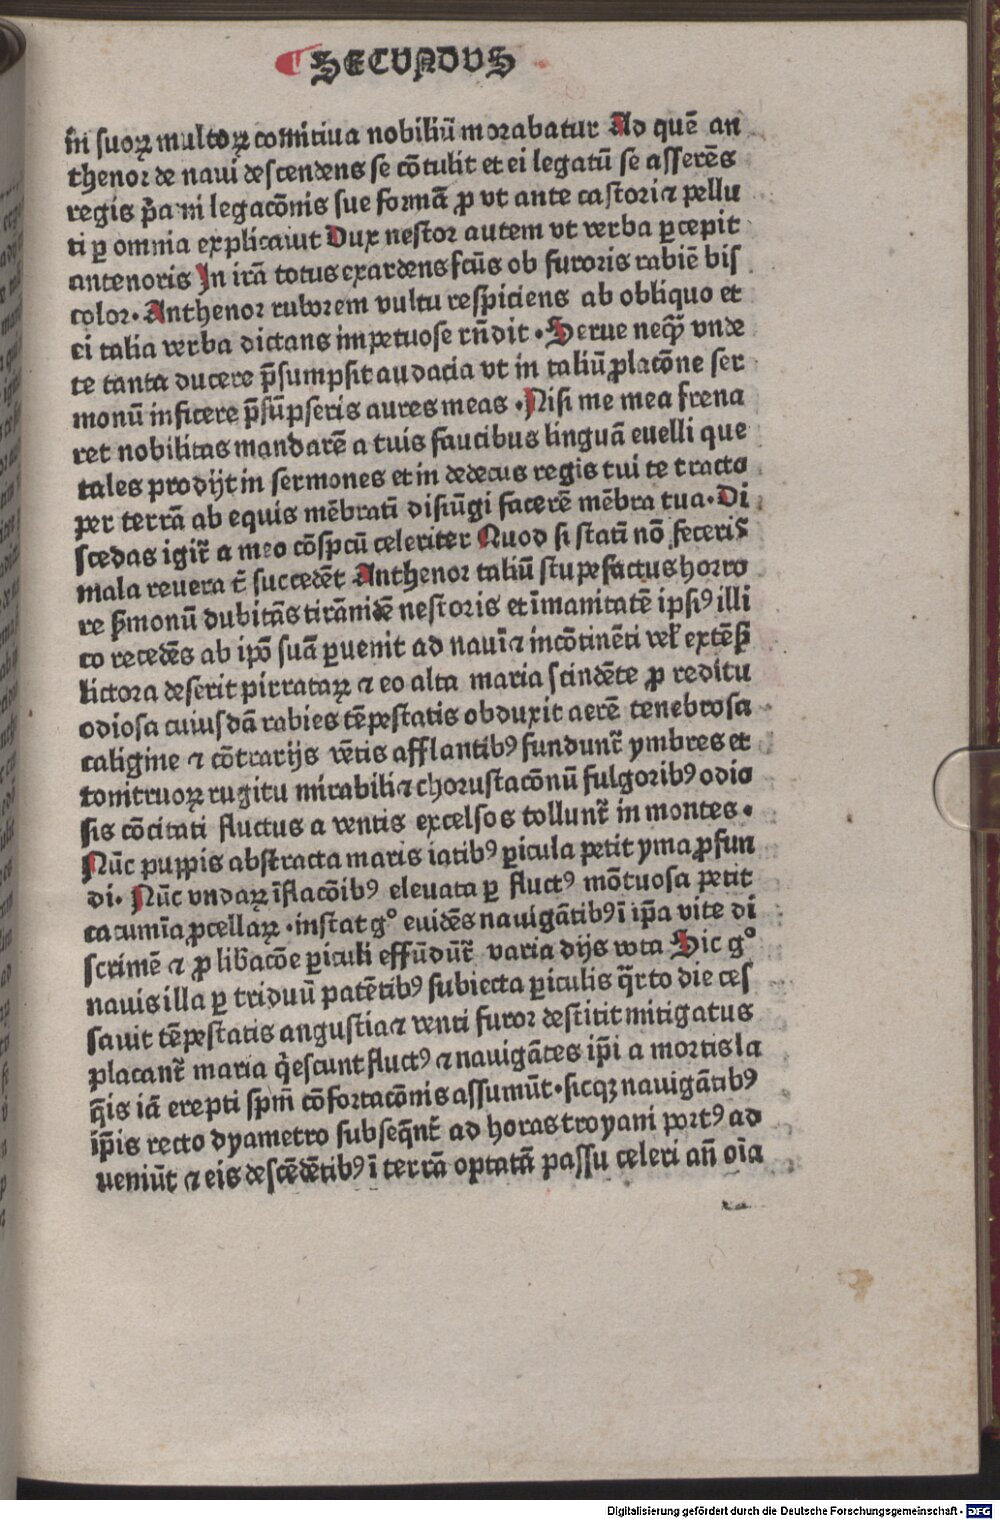 SECVNDVS
in̄ suoꝝ multoꝝ comitiua nobiliū morabatur Ad quē an
thenor de naui descendens se cōtulit et ei legatū se asserēs
regis p̄ami legacōnis sue formā ꝓ vt ante castori ⁊ pellu
ti ꝑ omnia explicauit Dux nestor autem vt verba ꝑcepit
antenoris In irā totus exardens fc̄us ob furoris rabiē bis
color. Anthenor ruborem vultu respiciens ab obliquo et
ei talia verba dictans impetuose rn̄dit. Serue neqͣꝫ vnde
te tanta ducere p̄sumpsit audacia vt in taliū ꝓlacōne ser
monū inficere p̄sūpseris aures meas. Nisi me mea frena
ret nobilitas mandarē a tuis faucibus linguā euelli que
tales prodijt in sermones et in dedecus regis tui te tracto
per terrā ab equis mēbrati disiūgi facerē mēbra tua. Di
scedas igit̄ a meo cōspcū celeriter Quod si stati nō feceris
mala reuera t̄ succedēt Anthenor taliū stupefactus horro
re ẜmonū dubitās tirānidē nestoris et īmanitatē ipsiꝰ illi
co recedēs ab ipō suā ꝑuenit ad nauī ⁊ incōtinēti vel' extēẜ
lictora deserit pirrataꝝ ⁊ eo alta maria scindēte ꝓ reditu
odiosa cuiusdā rabies tēpestatis obduxit aerē tenebrosa
caligine ⁊ cōtrarijs vētis afflantibꝰ fundunt̄ ymbres et
tonitruoꝝ rugitu mirabili ⁊ chorustacōnū fulgoribꝰ odio
sis cōcitati fluctus a ventis excelsos tollunt̄ in montes.
Nūc puppis abstracta maris iatibꝰ ꝑicula petit yma ꝓfun
di. Nūc vndaꝝ īflacōibꝰ eleuata ꝑ fluctꝰ mōtuosa petit
cacumīa ꝓcellaꝝ. instat gͦ euidēs nauigātibꝰ ī ip̄a vite di
scrimē ⁊ ꝓ lib̄acōe ꝑiculi effūdūt̄ varia dijs vota Sic gͦ
nauis illa ꝑ triduū patētibꝰ subiecta ꝑiculis q̄rto die ces
sauit tēpestatis angustia ⁊ venti furor destitit mitigatus
placant̄ maria q̇escunt fluctꝰ ⁊ nauigātes ip̄i a mortis la
q̄is iā erepti sp̄m cōfortacōnis assumūt. sicqꝫ nauigātibꝰ
ip̄is recto dyametro subseq̄nt̄ ad horas troyani portꝰ ad
ueniūt ⁊ eis descēdētibꝰ ī terrā optatā passu celeri an̄ oīa
Digitalisierung gefördert durch die Deutsche Forschungsgemeinschaft - DFG